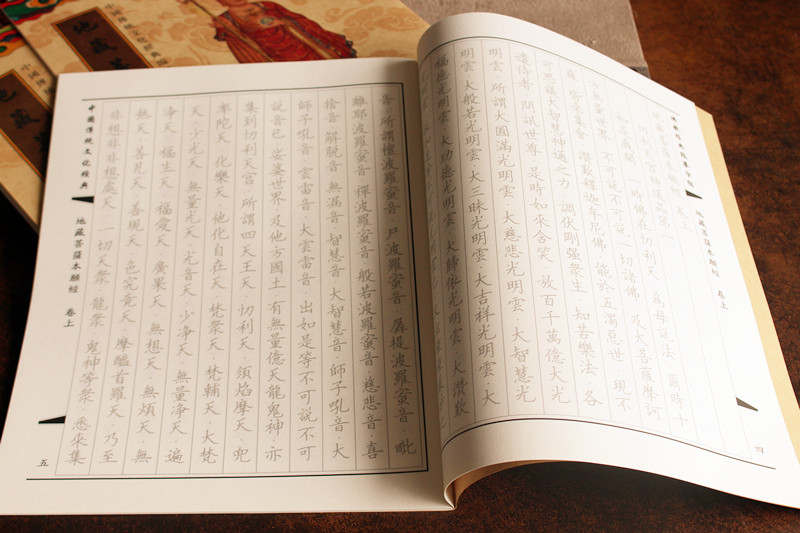 地藏菩薩本願經 卷上
四
如是我聞 一時佛在忉利天 為母說法 爾時十
方無量世界 不可說不可說一切諸佛 及大菩薩摩訶
薩 皆來集會 讚歎釋迦牟尼佛 能於五濁惡世 現不
可思議大智慧神通之力 調伏剛強眾生 知苦樂法 各
遣侍者 問訊世尊 是時如來含笑 放百千萬億大光
明雲 所謂大圓滿光明雲 大慈悲光明雲 大智慧光
明雲 大般若光明雲 大三昧光明雲 大吉祥光明雲 大
福德光明雲 大功德光明雲 大歸依光明雲 大讚歎
音 所謂檀波羅蜜音 尸波羅蜜音 羼提波羅蜜音 毗
離耶波羅蜜音 禪波羅蜜音 般若波羅蜜音 慈悲音 喜
捨音 解脫音 無漏音 智慧音 大智慧音 師子吼音 大
師子吼音 雲雷音 大雲雷音 出如是等不可說不可
說音已 娑婆世界 及他方國土 有無量億天龍鬼神 亦
集到忉利天宮 所謂四天王天 忉利天 須焰摩天 兜
率陀天 化樂天 他化自在天 梵眾天 梵輔天 大梵
天 少光天 無量光天 光音天 少淨天 無量淨天 遍
淨天 福生天 福愛天 廣果天 無想天 無煩天 無
熱天 善見天 善現天 色究竟天 摩醯首羅天 乃至
非想非非想處天 一切天眾 龍眾 鬼神等眾 悉來集
中國傳統文化經典
地藏菩薩本願經 卷上
五